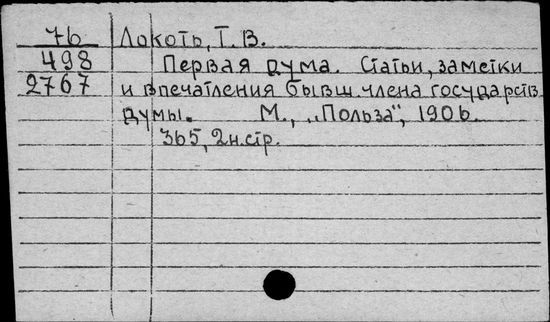 76 Локоть, Т. В.
498 Первая дума. Статьи, заметки
2767 и впечатления бывш. члена государств.
думы. М., „Польза", 1906.
365, 2 н. стр.